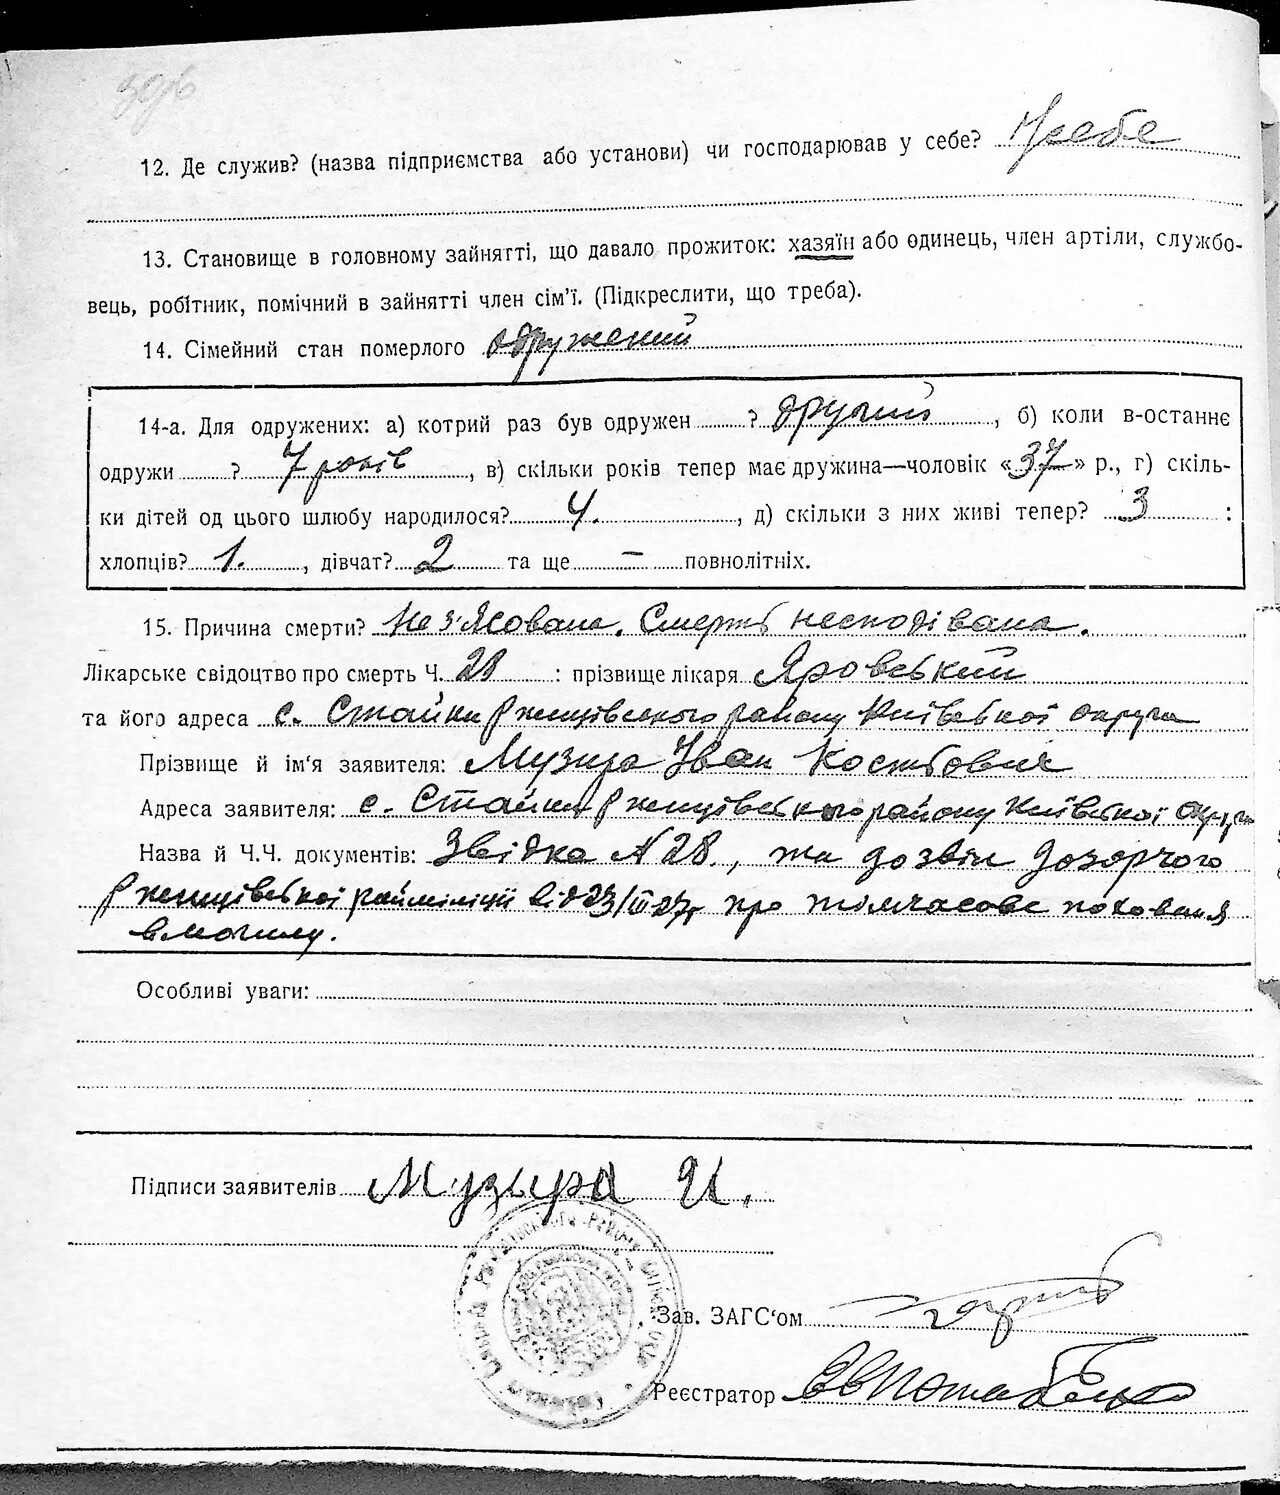 396
12. Де служив? (назва підприємства або установи) чи господарював у себе? У себе
13. Становище в головному зайнятті, що давало прожиток: хазяїн або одинець, член артілі, службо-
вець, робітник, помічний в зайнятті член сім'ї. (Підкреслити, що треба).
14. Сімейний стан померлого одружений
14-а. Для одружених: а) котрий раз був одружен ? другий, б) коли в-останнє
одружи ? 7 років, в) скільки років тепер має дружина—чоловік «37» р., г) скіль-
ки дітей од цього шлюбу народилося? 4., д) скільки з них живі тепер? 3 :
хлопців? 1., дівчат? 2 та ще — повнолітніх.
15. Причина смерти? Не з'ясована. Смерть несподівана.
Лікарське свідоцтво про смерть Ч. 28 : прізвище лікаря Яровський
та його адреса с. Стайки Ржищівського району Київської округи
Прізвище й ім'я заявителя: Музира Іван Костьович
Адреса заявителя: с. Стайки Ржищівського району Київської округи
Назва й Ч.Ч. документів: Звідка N 28., та дозвіл дозорчого
Ржищівської райміліції від 23/III 27р про тімчасове поховання
в могилу.
Особливі уваги:
Підписи заявителів Музыра И.
Зав. ЗАГС'ом
Реєстратор